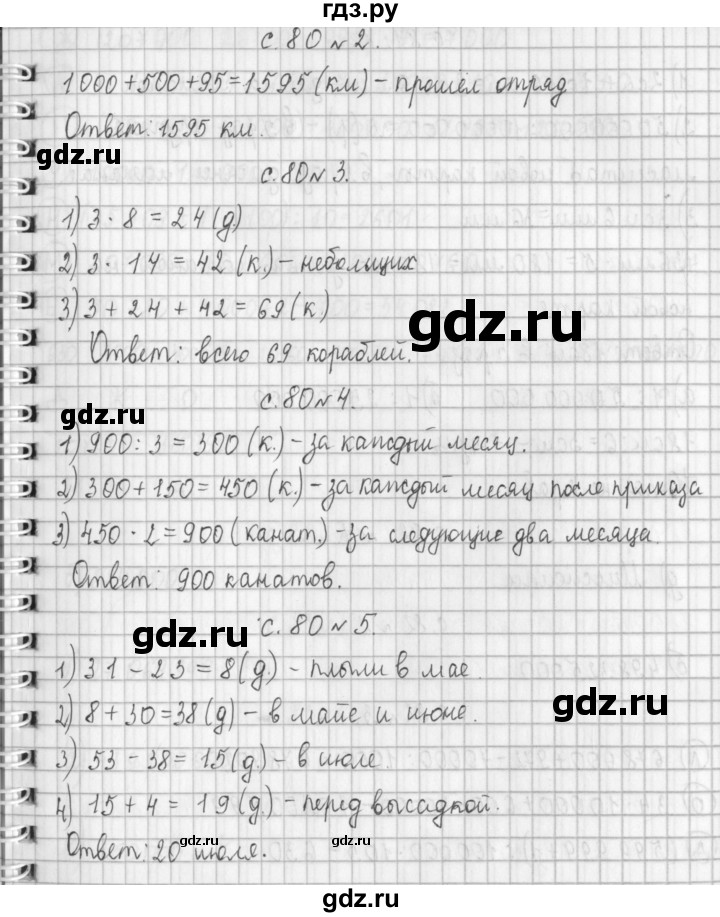 гдз.ру
с. 80 № 2.
1000+500+95=1595(км)-прошёл отряд
Ответ: 1595 км.
gdz.ru
с. 80 № 3.
1) 3 · 8 = 24 (д)
2) 3 · 14 = 42 (к.) - небольших
3) 3 + 24 + 42 = 69 (к)
gdz.ru
Ответ: всего 69 кораблей.
с. 80 № 4.
gdz.ru
1) 900 : 3 = 300 (к.) - за каждый месяц.
2) 300+150=450 (к.) - за каждый месяц после приказа
3) 450 · 2 = 900 (канат.) - за следующие два месяца.
Ответ: 900 канатов.
с. 80 № 5.
gdz.ru
1) 31 - 23 = 8 (д.) - плыли в мае
2) 8 + 30 = 38 (д) - в майе и июне.
gdz.ru
3) 53 - 38 = 15 (д.) - в июле
4) 15 + 4 = 19 (д.) - перед высадкой.
Ответ: 20 июля.
gdz.ru
gdz.ru
gdz.ru